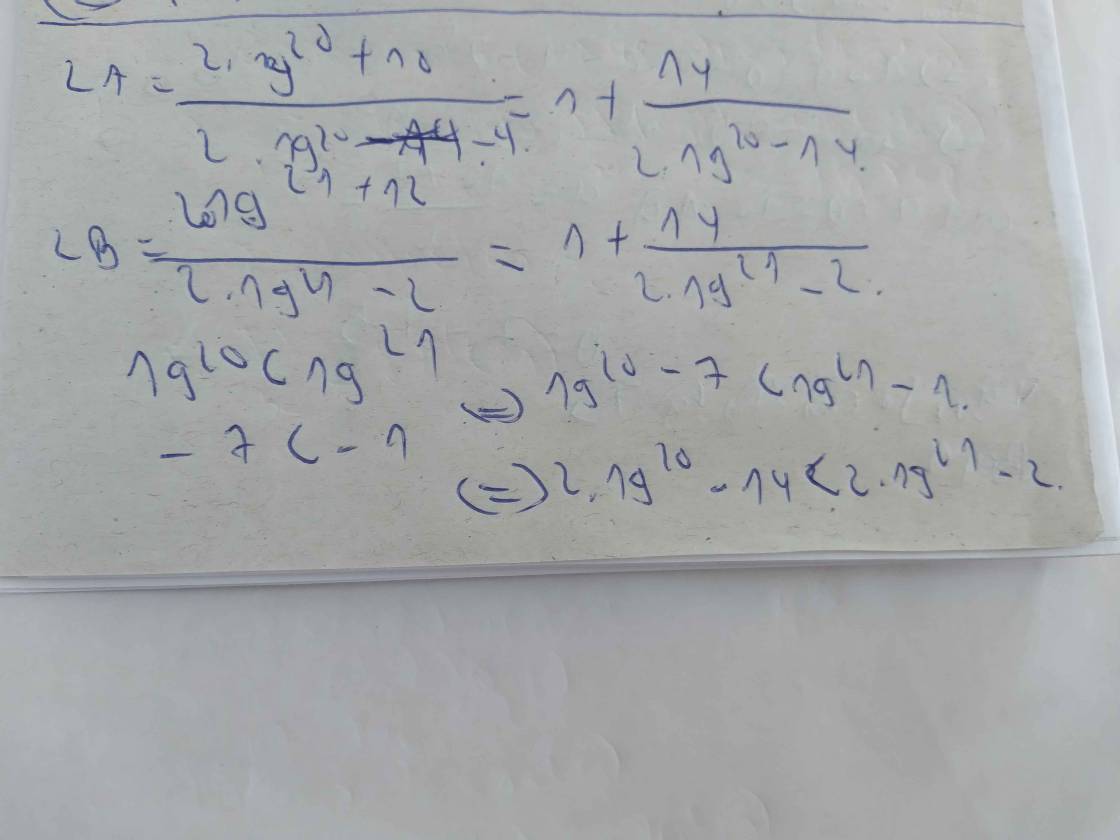 2A = \frac{2.19^{20} + 10}{2.19^{20} - 4.} = 1 + \frac{14}{2.19^{20} - 14.}
2B = \frac{2.19^{21} + 12}{2.19^{21} - 2} = 1 + \frac{14}{2.19^{21} - 2.}
19^{20} < 19^{21} (=) 19^{20} - 7 < 19^{21} - 1.
- 7 < - 1
(=) 2.19^{20} - 14 < 2.19^{21} - 2.